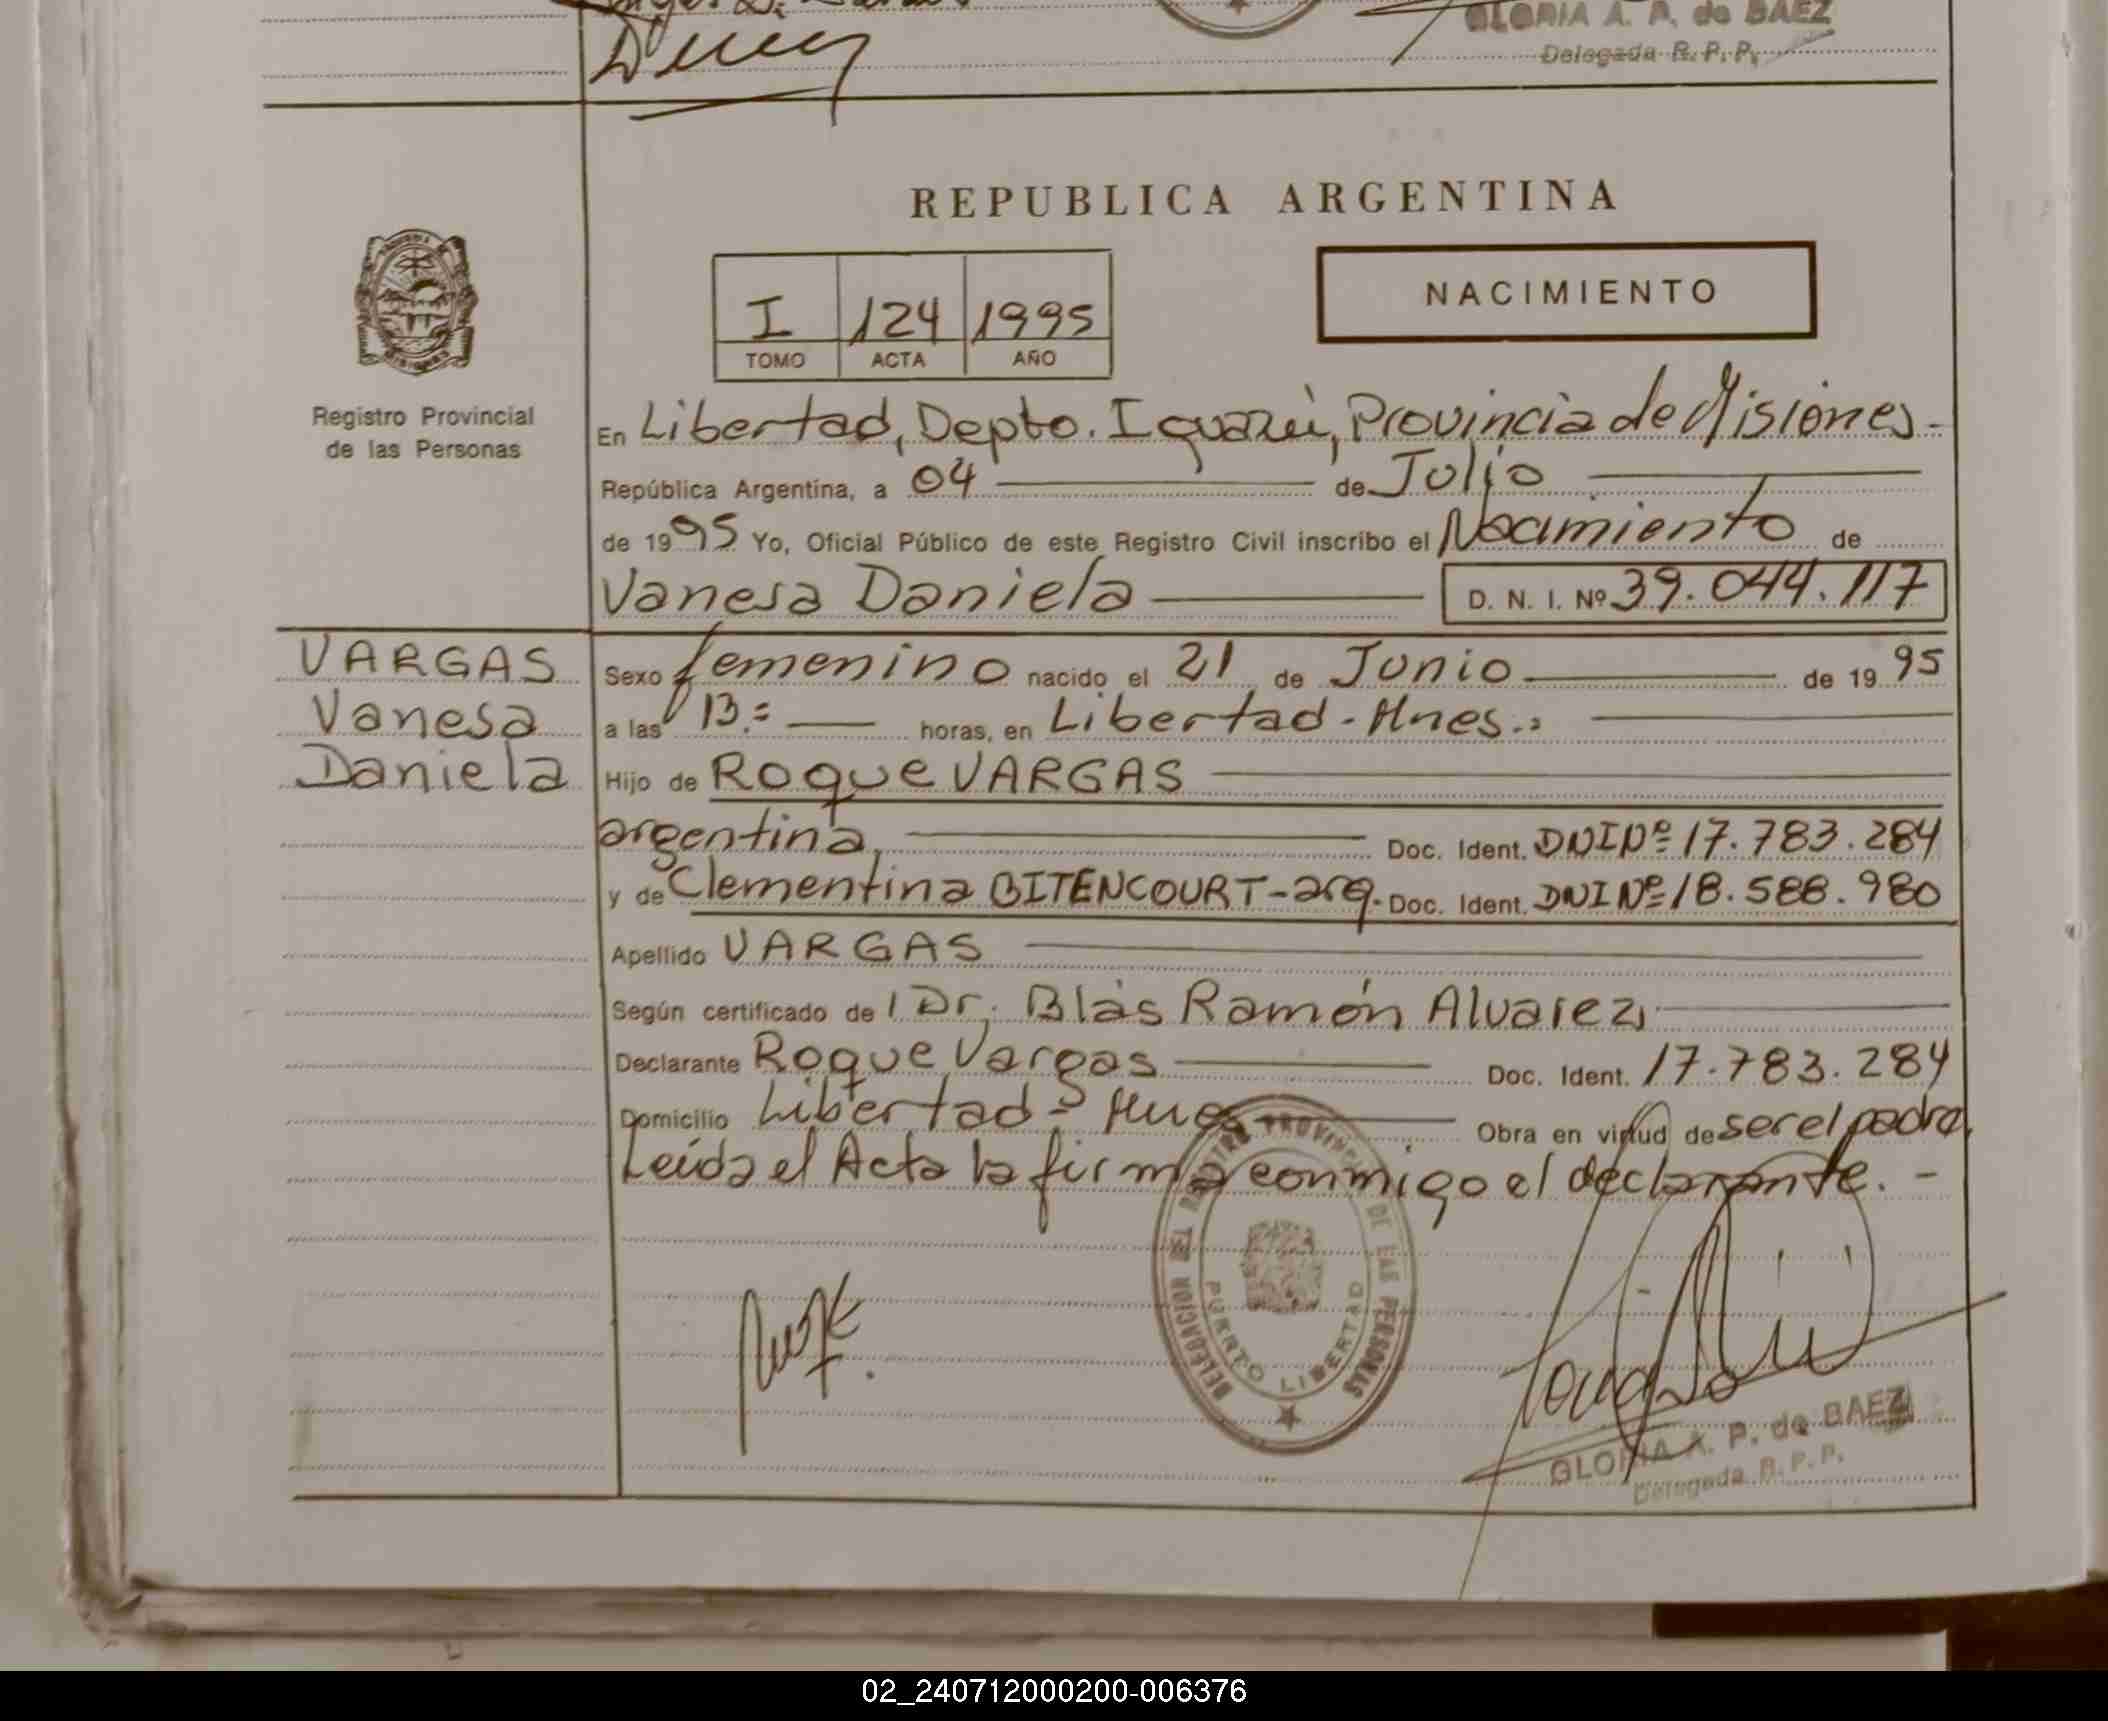 GLORIA A. P. de BAEZ
Delegada R. P. P.
REPUBLICA ARGENTINA
I 124 1995
TOMO ACTA AÑO
NACIMIENTO
Registro Provincial
de las Personas
En Libertad, Depto. Iguazú, Provincia de Misiones.-
República Argentina, a 04 de Julio
de 1995 Yo, Oficial Público de este Registro Civil inscribo el Nacimiento de
Vanesa Daniela D. N. I. Nº 39.044.117
VARGAS
Vanesa
Daniela
Sexo femenino nacido el 21 de Junio de 1995
a las 13:= horas, en Libertad - Mnes.:
Hijo de Roque VARGAS
argentina, Doc. Ident. DNI Nº 17.783.284
y de Clementina BITENCOURT - arg. Doc. Ident. DNI Nº 18.588.980
Apellido VARGAS
Según certificado del Dr. Blás Ramón Alvarez,
Declarante Roque Vargas Doc. Ident. 17.783.284
Domicilio Libertad - Mnes Obra en virtud de ser el padre,
Leída el Acta la firma conmigo el declarante. -
DELEGACION DEL REGISTRO PROVINCIAL DE LAS PERSONAS
PUERTO LIBERTAD
GLORIA A. P. de BAEZ
Delegada R. P. P.
02_240712000200-006376